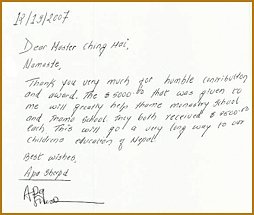 12/19/2007
Dear Master Ching Hai,
Namaste,
Thank you very much got humble contribution
and award. The $5000.00 that was given to
me will greatly help thame monastry School
and Thame School they both received $2500.00
each This will go a very long way to our
childrens education of Nepal
Best wishes,
Apa Sherpa